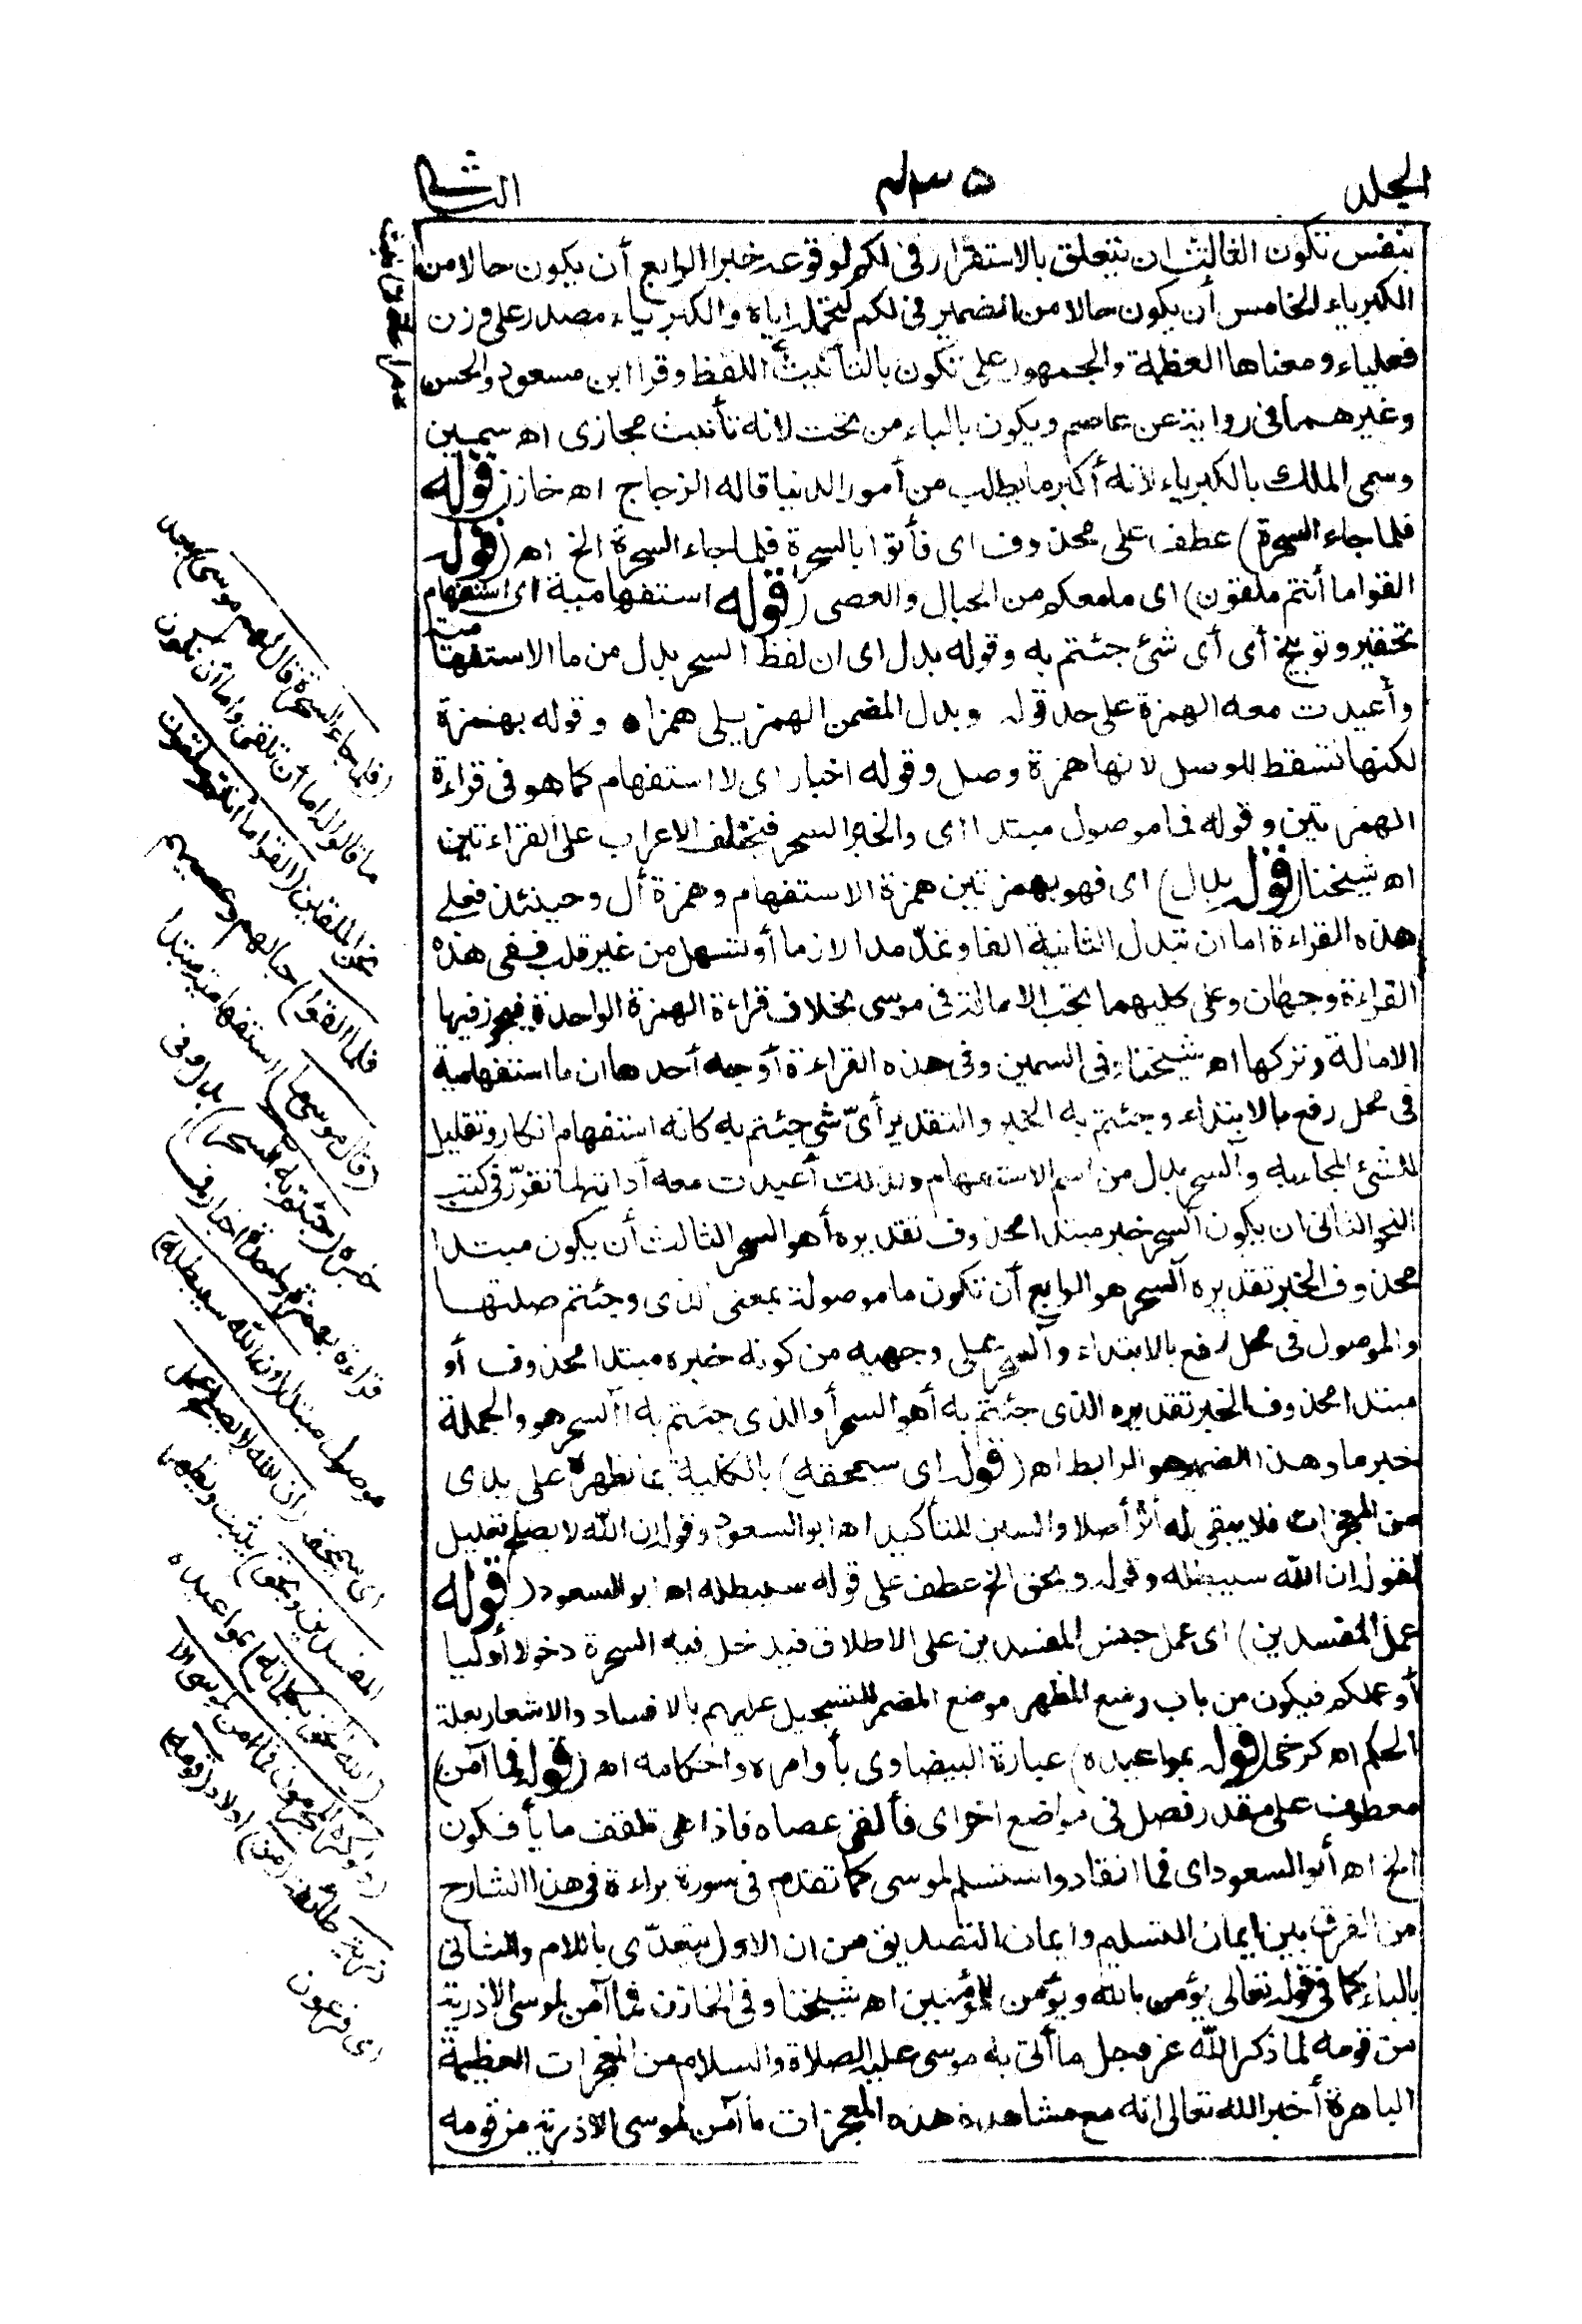 الجلد
الثاني
بنفس تكون الثالث ان يتعلق بالاستقرار فى لكم لوقوعه خبرا الرابع أن يكون حالا من
الكبرياء الخامس أن يكون حالا من الضمير فى لكم لتحمله اياه والكبرياء مصدر على وزن
فعلياء ومعناها العظمة والجمهور على تكون بالتأنيث اللفظ وقرا ابن مسعود والحسن
وغيرهما فى رواية عن عاصم ويكون بالياء من تحت لانه تأنيث مجازى اه سمين
وسمى الملك بالكبرياء لانه أكبر ما يطلب من أمور الدنيا قاله الزجاج اه خازن قوله
فلما جاء السحرة) عطف على محذوف اى فأتوا بالسحرة فلما جاء السحرة الخ اه (قوله
القوا ما أنتم ملقون) اى ما معكم من الحبال والعصى (قوله استفهامية اى استفهام
تحقير وتوبيخ أى أى شئ جئتم به وقوله بدل اى ان لفظ السحر بدل من ما الاستفهامية
وأعيدت معه الهمزة على حد قوله وبدل المضمن الهمز يلى همزا ه وقوله بهمزة
لكنها تسقط للوصل لانها همزة وصل وقوله اخبار اى لا استفهام كما هو فى قراءة
الهمزتين وقوله فما موصول مبتدا اى والخبر السحر فيختلف الاعراب على القراءتين
اه شيخنا (قوله بدل) اى فهو بهمزتين همزة الاستفهام وهمزة أل وحينئذ فعلى
هذه القراءة اما ان تبدل الثانية الفا وتمدّ مدا لازما أو تسهل من غير قلب ففى هذه
القراءة وجهان وعلى كليهما تجب الامالة فى موسى بخلاف قراءة الهمزة الواحدة فيجوز فيها
الامالة وتركها اه شيخنا وفى السمين وفى هذه القراءة أوجه أحدها ان ما استفهامية
فى محل رفع بالابتداء وجئتم به الخبر والتقدير أىّ شئ جئتم به كانه استفهام انكار وتقليل
للشئ المجاء به والسحر بدل من اسم الاستفهام ولذلك أعيدت معه أداته لما تقرّر فى كتب
النحو الثانى ان يكون آلسحر خبر مبتدا محذوف تقديره أهو السحر الثالث أن يكون مبتدا
محذوف الخبر تقديره آلسحر هو الرابع أن تكون ما موصولة بمعنى الذى وجئتم صلتها
والموصول فى محل رفع بالابتداء وآلسحر على وجهيه من كونه خبره مبتدا محذوف أو
مبتدا محذوف الخبر تقديره الذى جئتم به أهو السحر أو الذى جئتم به آلسحر هو والجملة
خبر ما وهذا الضمير هو الرابط اه (قوله اى سيمحقه) بالكلية بما يظهره على يدى
من المعجزات فلا يبقى له أثر أصلا والسين للتأكيد اه ابو السعود وقوله ان الله لا يصلح تعليل
لقوله ان الله سيبطله وقوله ويحق الخ عطف على قوله سيبطله اه ابو السعود (قوله
عمل المفسدين) اى عمل جنس المفسدين على الاطلاق فيدخل فيه السحرة دخولا أوليا
أو عملكم فيكون من باب وضع المظهر موضع المضمر للتسجيل عليهم بالافساد والاشعار بعلة
الحكم اه كرخى (قوله بمواعيده) عبارة البيضاوى بأوامره واحكامه اه (قوله فما آمن)
معطوف على مقدر فصل فى مواضع اخر اى فألقى عصاه فاذا هى تلقف ما يأفكون
الخ اه أبو السعود اى فما انقاد واستسلم لموسى كما تقدم فى سورة براءة فى هذا الشارح
من الفرق بين ايمان التسليم وايمان التصديق من ان الاول يتعدّى باللام والثانى
بالباء كما فى قوله تعالى يؤمن بالله ويؤمن للمؤمنين اه شيخنا وفى الخازن فما آمن لموسى الا ذرية
من قومه لما ذكر الله عز وجل ما أتى به موسى عليه الصلاة والسلام من المعجزات العظيمة
الباهرة أخبر الله تعالى انه مع مشاهدة هذه المعجزات ما آمن لموسى الا ذرية من قومه
(فلما جاء السحرة قال لهم موسى) بعد
ما قالوا له اما أن تلقى واما أن نكون
نحن الملقين (القوا ما أنتم ملقون
فلما القوا) حبالهم وعصيهم
(قال موسى ما) استفهامية مبتدا
خبره (جئتم به آلسحر) بدل وفى
قراءة بهمزة واحدة اخبار فما
موصول مبتدا (ان الله سيبطله)
اى سيمحقه (ان الله لا يصلح عمل
المفسدين ويحق) يثبت ويظهر
(الله الحق بكلماته) بمواعيده
(ولو كره المجرمون فما آمن لموسى الا
ذرية) طائفة (من) اولاد (قومه)
اى فرعون